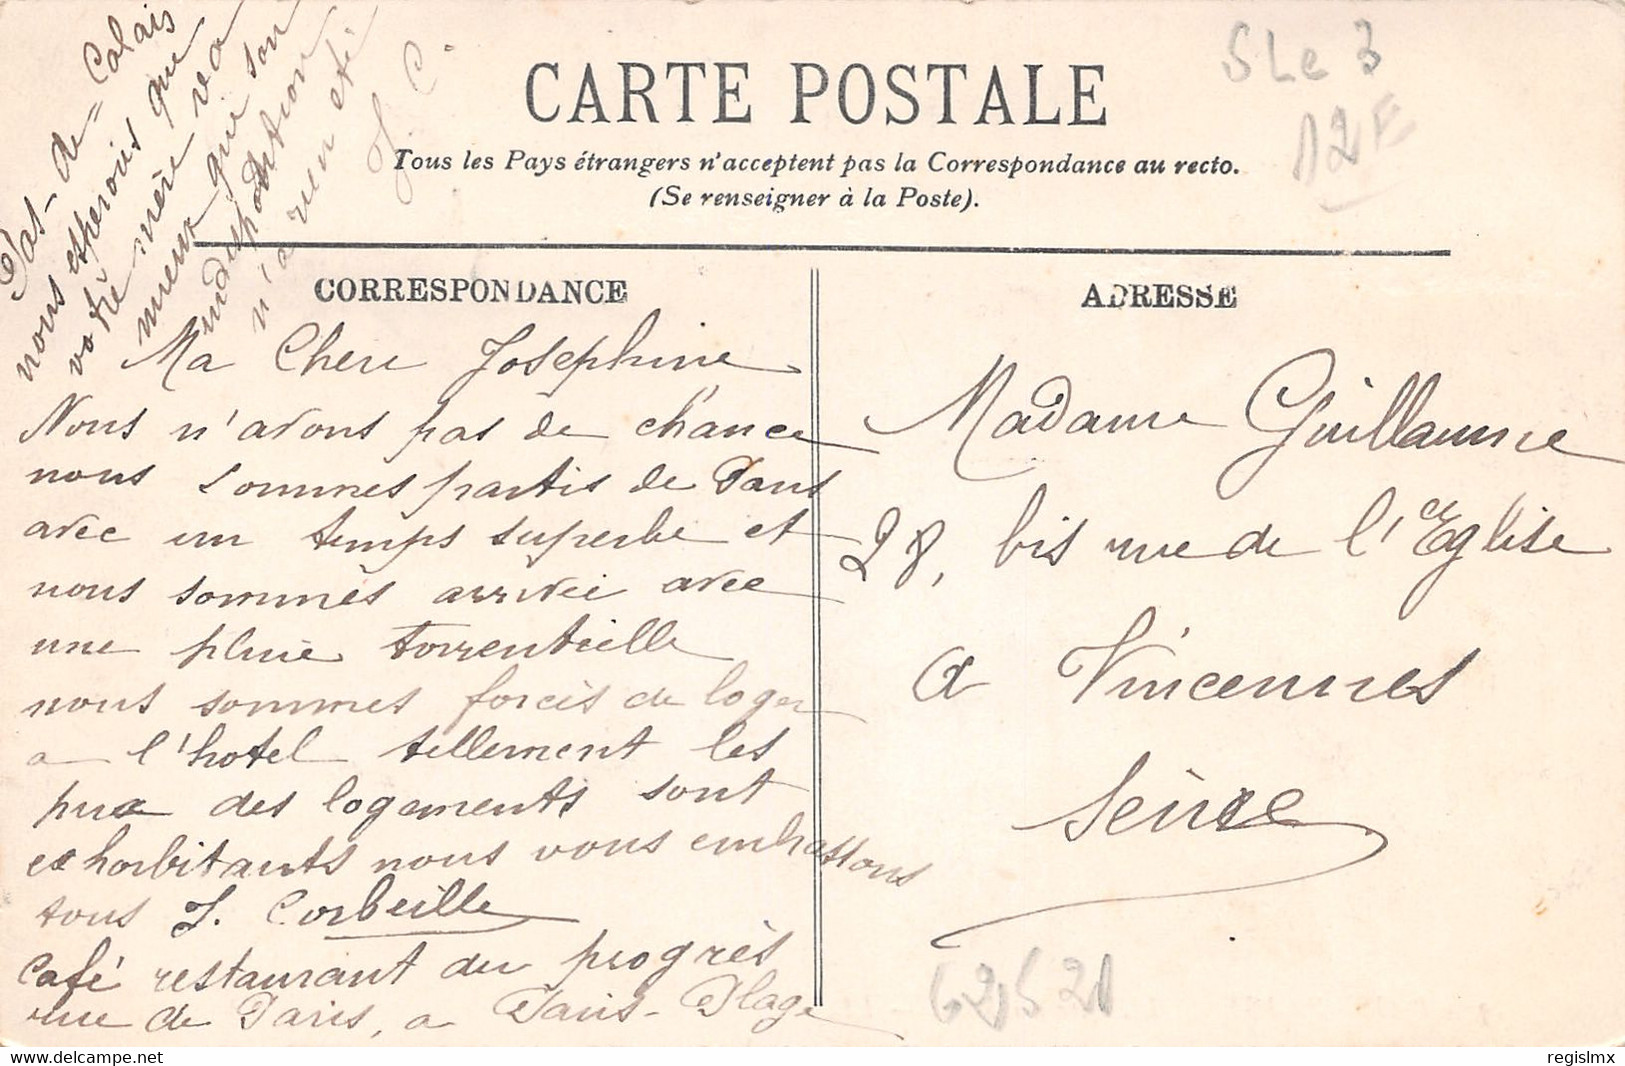 CARTE POSTALE
Tous les Pays étrangers n'acceptent pas la Correspondance au recto.
(Se renseigner à la Poste).
CORRESPONDANCE
Ma Chere Josephine
Nous n'avons pas de chance
nous sommes partis de Paris
avec un temps superbe et
nous sommes arrivée avec
une pluie torrentielle
nous sommes forcés de loger
a l'hotel tellement les
prix des logements sont
exhorbitants nous vous embrassons
tous J. Corbeille
Café restaurant du progrès
rue de Paris, a Paris-Plage
Pas-de-Calais
nous esperons que
votre mère va
mieux que son
indisposition
n'a rien été
J. C.
ADRESSE
Madame Guillaume
28, bis rue de l'Eglise
a Vincennes
Seine
SLe 3
12E
62521
regislmx